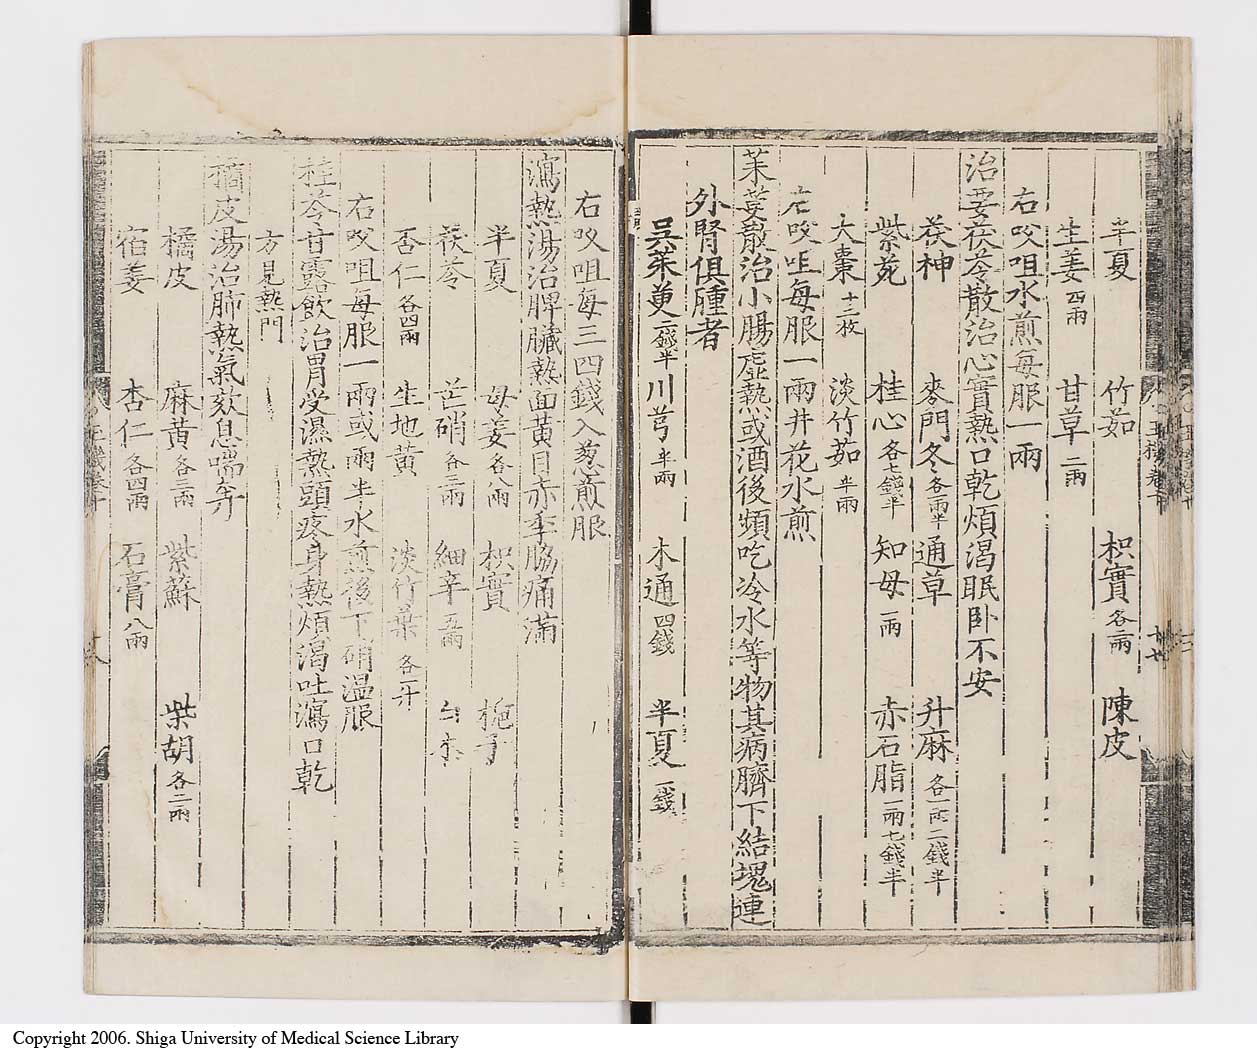 半夏 竹茹 枳實各二兩 陳皮
生姜四兩 甘草二兩
右㕮咀水煎每服一兩
治要茯苓散治心實熱口乾煩渴眠卧不安
茯神 麥門冬各一兩半 通草 升麻各一兩二錢半
紫菀 桂心各七錢半 知母一兩 赤石脂一兩七錢半
大棗十二枚 淡竹茹半兩
右㕮咀每服一兩井花水煎
茱萸散治小腸虛熱或酒後頻吃冷水等物其病臍下結塊連
外腎俱腫者
吳茱萸一錢半 川芎半兩 木通四錢 半夏一錢
右㕮咀每三四錢入葱煎服
瀉熱湯治脾臟熱面黃目赤季脇痛滿
半夏 母姜各八兩 枳實 梔子
茯苓 芒硝各三兩 細辛五兩 白朮
杏仁各四兩 生地黃 淡竹葉各一升
右㕮咀每服一兩或兩半水煎後下硝温服
桂苓甘露飲治胃受濕熱頭疼身熱煩渴吐瀉口乾
方見熱門
橘皮湯治肺熱氣欬息喘奔
橘皮 麻黃各三兩 紫蘇 柴胡各二兩
宿姜 杏仁各四兩 石膏八兩
Copyright 2006. Shiga University of Medical Science Library